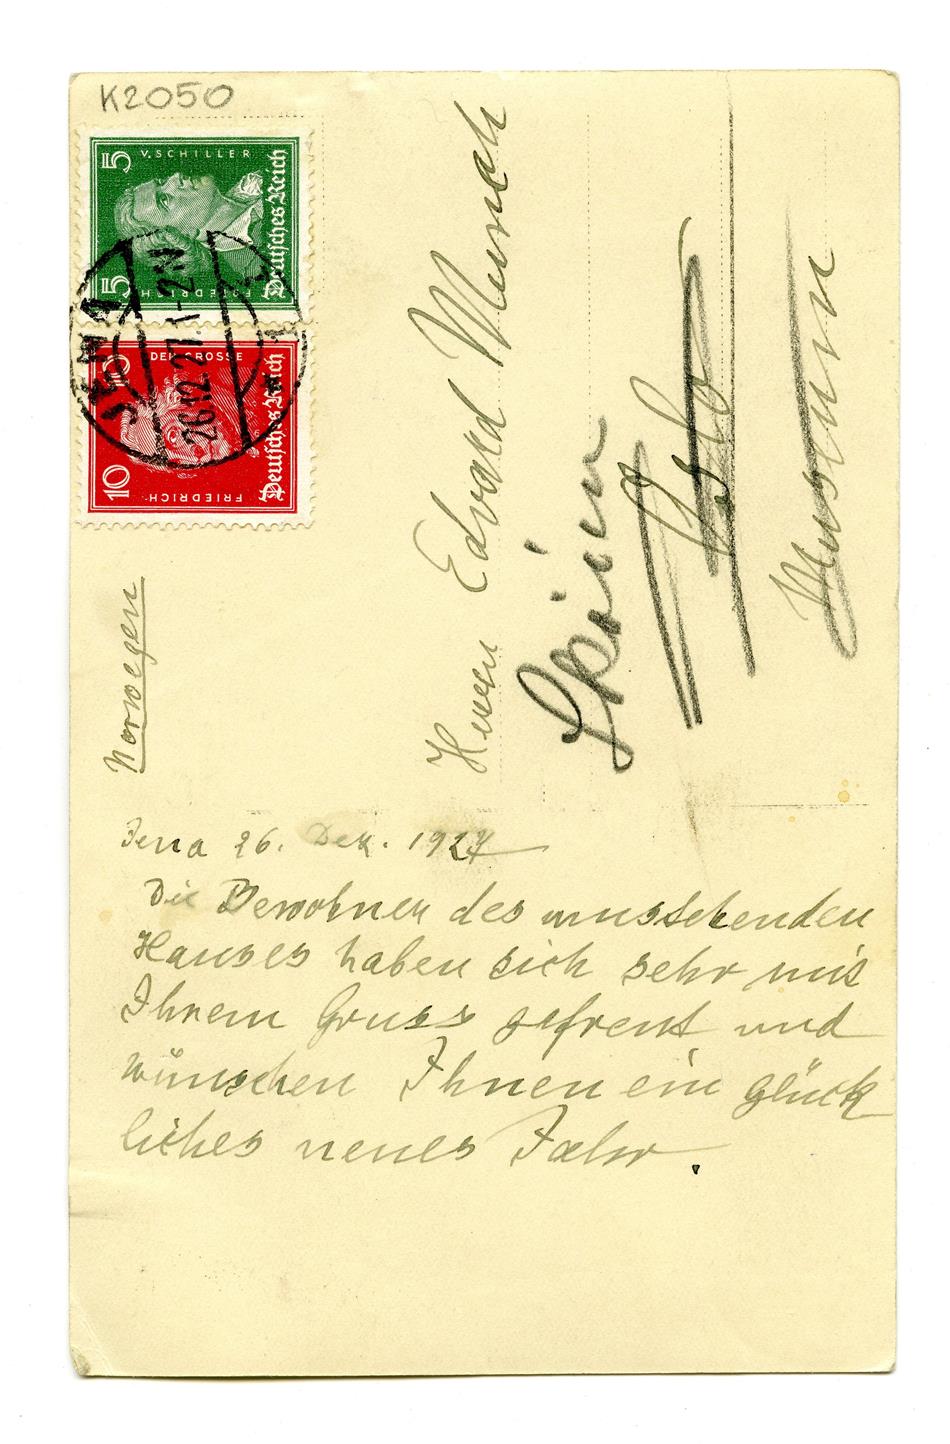 K2050
5 V. SCHILLER
Deutsches Reich
5 FRIEDRICH
10 DER GROSSE
Deutsches Reich
10 FRIEDRICH
JENA
26.12.27. 1-2 N
Herrn Edvard Munch
Skøien
Oslo
Museum
Norwegen
Jena 26. Dez. 1927
Die Bewohner des umstehenden
Hauses haben sich sehr mit
Ihrem Gruss gefreut und
wünschen Ihnen ein glück
liches neues Jahr.